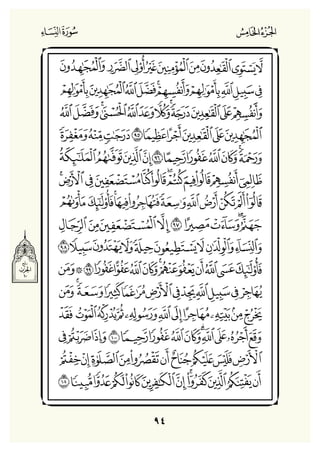 الجزء الخامس سورة النساء
لَّا يَسْتَوِى ٱلْقَـٰعِدُونَ مِنَ ٱلْمُؤْمِنِينَ غَيْرُ أُو۟لِى ٱلضَّرَرِ وَٱلْمُجَـٰهِدُونَ
فِى سَبِيلِ ٱللَّهِ بِأَمْوَٰلِهِمْ وَأَنفُسِهِمْ ۚ فَضَّلَ ٱللَّهُ ٱلْمُجَـٰهِدِينَ بِأَمْوَٰلِهِمْ
وَأَنفُسِهِمْ عَلَى ٱلْقَـٰعِدِينَ دَرَجَةً ۚ وَكُلًّا وَعَدَ ٱللَّهُ ٱلْحُسْنَىٰ ۚ وَفَضَّلَ ٱللَّهُ
ٱلْمُجَـٰهِدِينَ عَلَى ٱلْقَـٰعِدِينَ أَجْرًا عَظِيمًا ٩٥ دَرَجَـٰتٍ مِّنْهُ وَمَغْفِرَةً
وَرَحْمَةً ۚ وَكَانَ ٱللَّهُ غَفُورًا رَّحِيمًا ٩٦ إِنَّ ٱلَّذِينَ تَوَفَّىٰهُمُ ٱلْمَلَـٰٓئِكَةُ
ظَالِمِىٓ أَنفُسِهِمْ قَالُوا۟ فِيمَ كُنتُمْ ۖ قَالُوا۟ كُنَّا مُسْتَضْعَفِينَ فِى ٱلْأَرْضِ ۚ
قَالُوٓا۟ أَلَمْ تَكُنْ أَرْضُ ٱللَّهِ وَٰسِعَةً فَتُهَاجِرُوا۟ فِيهَا ۚ فَأُو۟لَـٰٓئِكَ مَأْوَىٰهُمْ
جَهَنَّمُ ۖ وَسَآءَتْ مَصِيرًا ٩٧ إِلَّا ٱلْمُسْتَضْعَفِينَ مِنَ ٱلرِّجَالِ
وَٱلنِّسَآءِ وَٱلْوِلْدَٰنِ لَا يَسْتَطِيعُونَ حِيلَةً وَلَا يَهْتَدُونَ سَبِيلًا ٩٨
فَأُو۟لَـٰٓئِكَ عَسَى ٱللَّهُ أَن يَعْفُوَ عَنْهُمْ ۚ وَكَانَ ٱللَّهُ عَفُوًّا غَفُورًا ٩٩ ۞ وَمَن
يُهَاجِرْ فِى سَبِيلِ ٱللَّهِ يَجِدْ فِى ٱلْأَرْضِ مُرَٰغَمًا كَثِيرًا وَسَعَةً ۚ وَمَن
يَخْرُجْ مِنۢ بَيْتِهِۦ مُهَاجِرًا إِلَى ٱللَّهِ وَرَسُولِهِۦ ثُمَّ يُدْرِكْهُ ٱلْمَوْتُ فَقَدْ
وَقَعَ أَجْرُهُۥ عَلَى ٱللَّهِ ۗ وَكَانَ ٱللَّهُ غَفُورًا رَّحِيمًا ١٠٠ وَإِذَا ضَرَبْتُمْ فِى
ٱلْأَرْضِ فَلَيْسَ عَلَيْكُمْ جُنَاحٌ أَن تَقْصُرُوا۟ مِنَ ٱلصَّلَوٰةِ إِنْ خِفْتُمْ
أَن يَفْتِنَكُمُ ٱلَّذِينَ كَفَرُوٓا۟ ۚ إِنَّ ٱلْكَـٰفِرِينَ كَانُوا۟ لَكُمْ عَدُوًّا مُّبِينًا ١٠١
٩٤